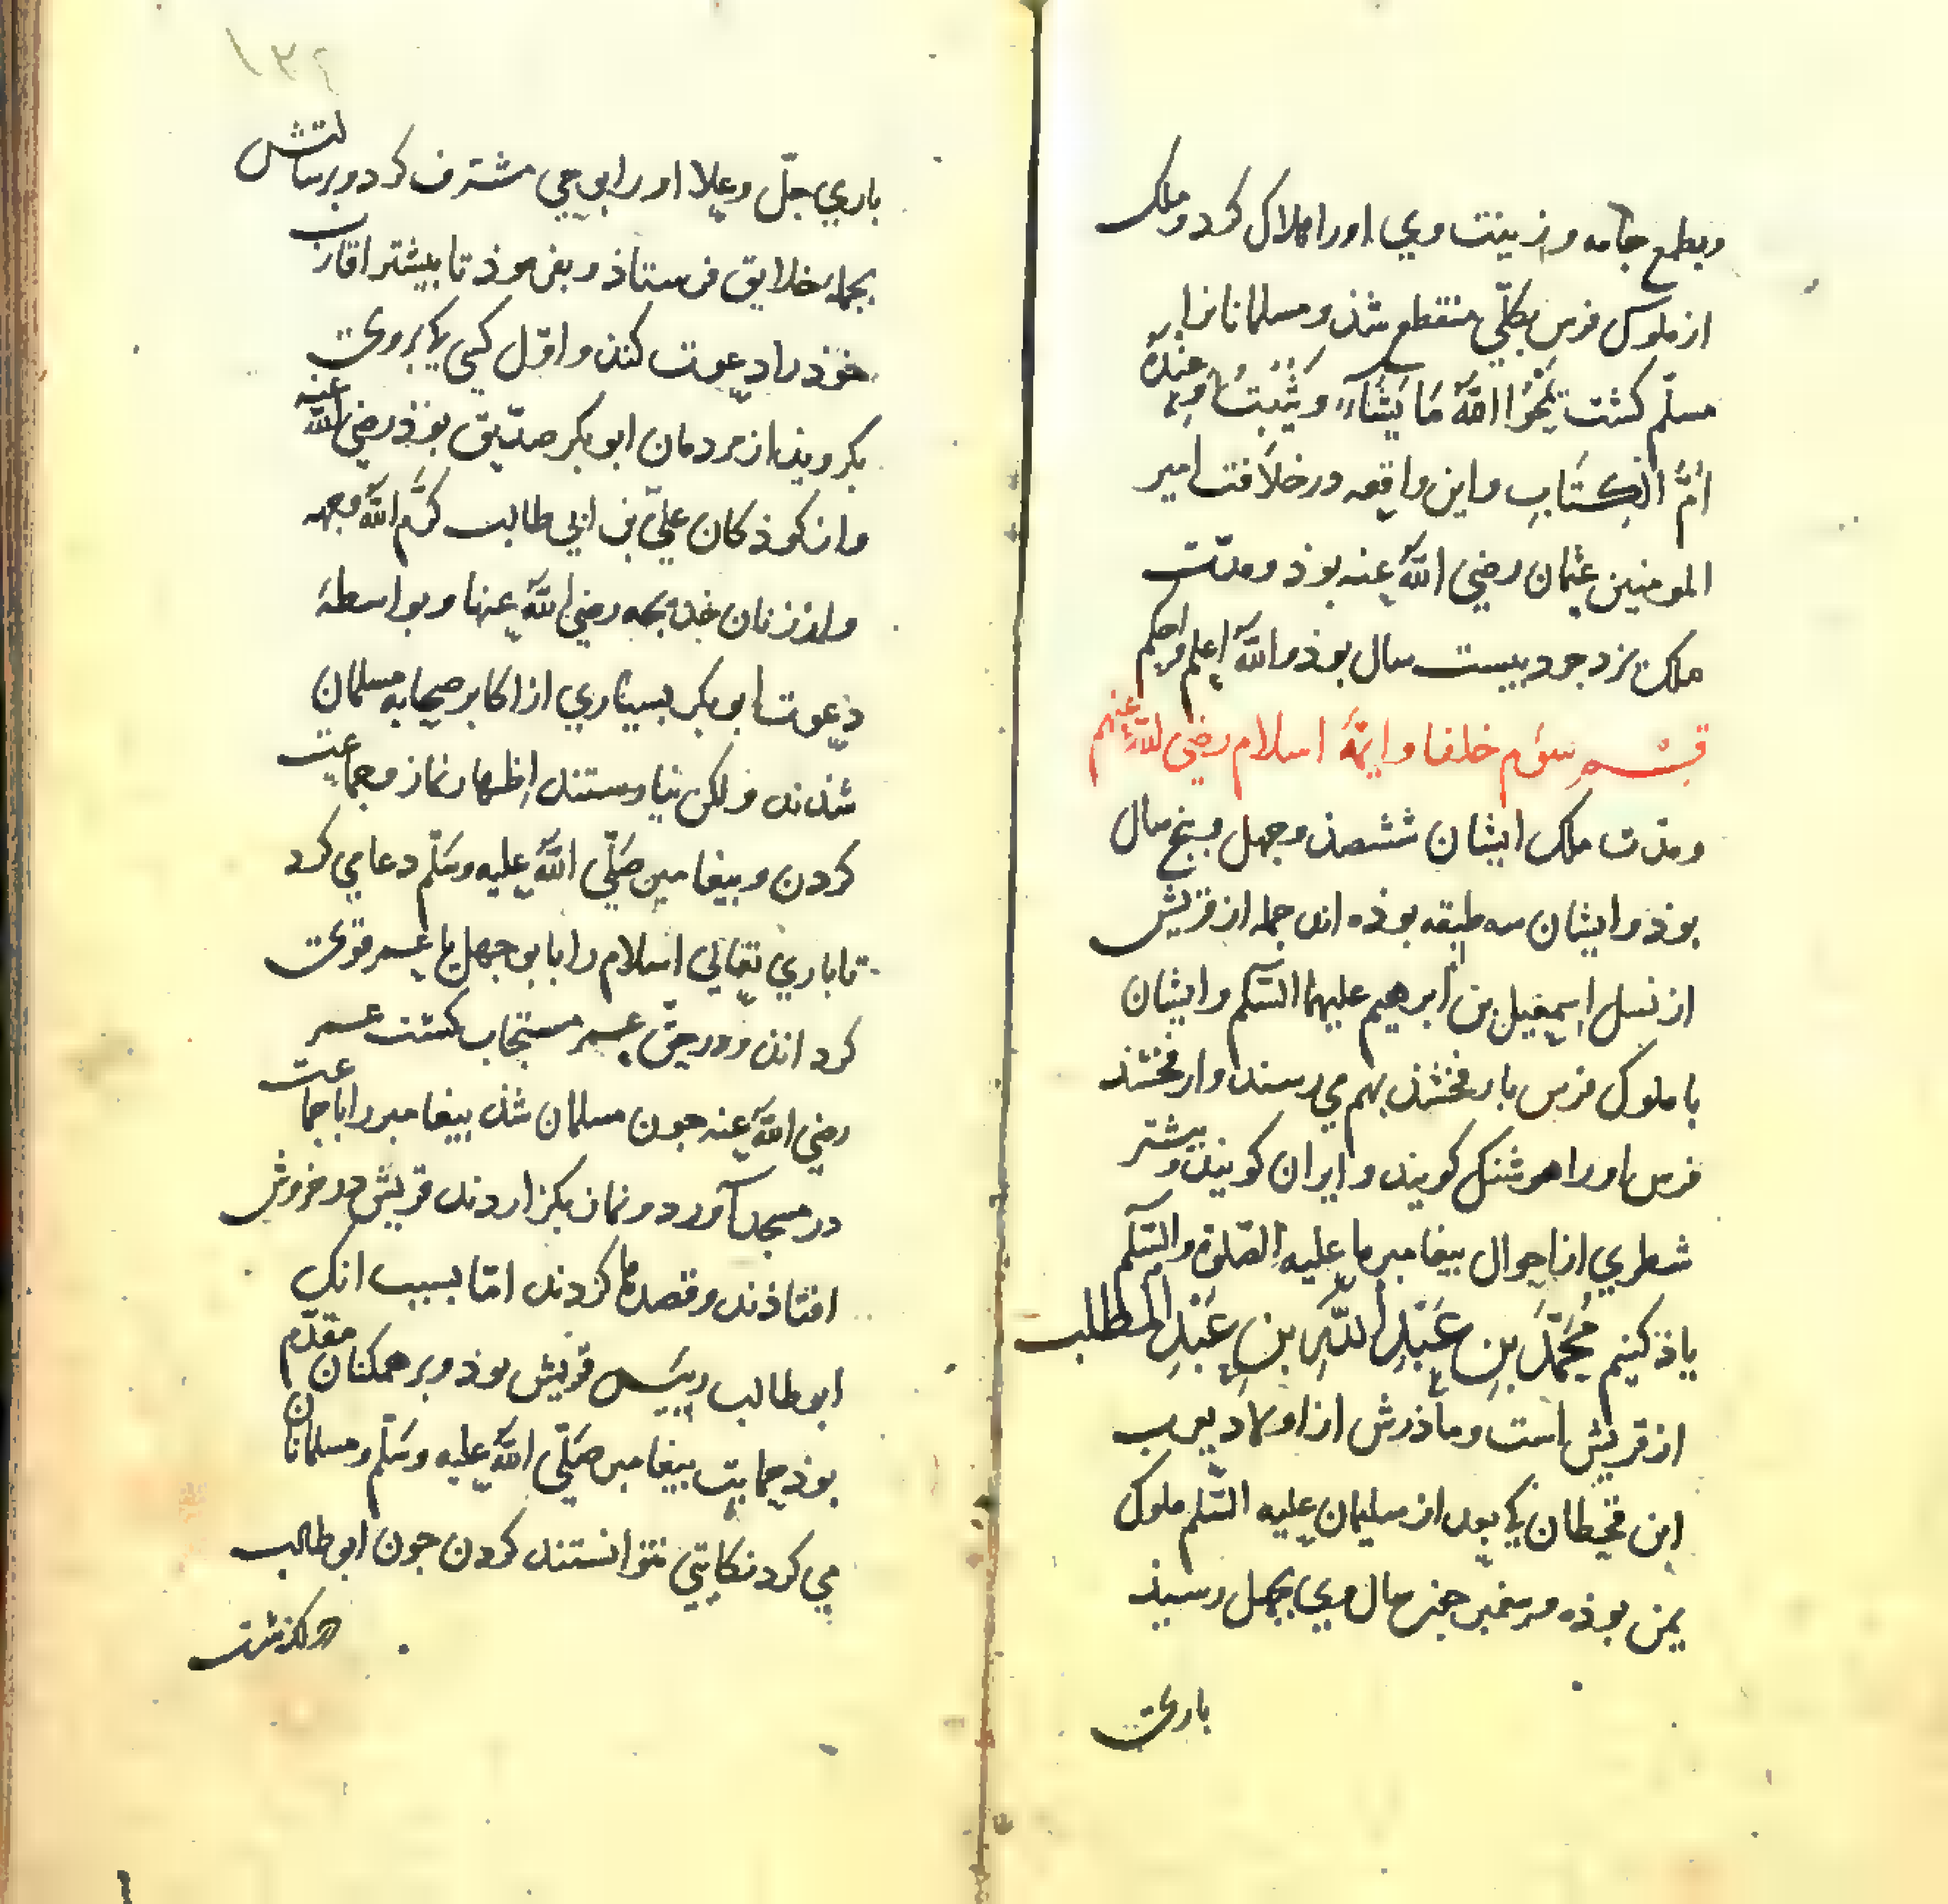 وبطمع جامه وزینت وي اورا هلاک کرد و ملک
از ملوک فرس بکلّي منقطع شذ و مسلمانانرا
مسلّم کشت یَمْحُوا اللّٰهُ مَا یَشَآءُ وَیُثْبِتُ وَعِنْدَهُ
اُمُّ الْکِتَابِ واین واقعه در خلافت امیر
المومنین عثمان رضي اللّٰه عنه بوذ ومدّت
ملک یزدجرد بیست سال بوذ واللّٰه اعلم واحکم
قسم سوم خلفا وایمّهٔ اسلام رضي اللّٰه عنهم
ومدّت ملک ایشان ششصذ وجهل وپنج سال
بوذ وایشان سه طبقه بوذه اند جمله از قریش
از نسل اسمعیل بن ابرهیم علیهما السّلم وایشان
با ملوک فرس بارفخشذ بهم مي رسند وارفخشذ
فرس اورا هوشنک کویند وایران کویند وبیشتر
شطري از احوال بیغامبر ما علیه الصّلوة والسّلم
یاذ کنیم مُحَمَّد بن عَبْدِ اللّٰهِ بنِ عَبْدِ المطلب
از قریش است وماذرش از اولاد یعرب
ابن قحطان کي بعد از سلیمان علیه السّلم ملوک
یمن بوذه وبیغمبر جون سال وي بجهل رسیذ
باري
باري جلّ وعلا اورا بوحي مشرّف کرد وبرسالتش
بجملهٔ خلایق فرستاذ وبفرموذ تا بیشتر اقارب
خوذ را دعوت کند واوّل کسي کي بروي
بکروید از مردمان ابوبکر صدّیق بوذ رضي اللّٰه عنه
واز کوذکان عليّ بن ابي طالب کرّم اللّٰه وجهه
واز زنان خدیجه رضي اللّٰه عنها وبواسطهٔ
دعوت ابوبکر بسیاري از اکابر صحابه مسلمان
شدند ولکن نیارستند اظهار نماز وجماعت
کردن وبیغامبر صَلّي اللّٰه علیه وسَلّم دعا مي کرد
تا باري تعالي اسلام را بابوجهل یا عمر قوي
کرداند ودر حقّ عمر مستجاب کشت عمر
رضي اللّٰه عنه جون مسلمان شذ بیغامبر را با جماعت
در مسجد آورد ونماز بکزاردند قریش در خروش
افتاذند وقصدها کردند امّا بسبب انک
ابوطالب رییس قریش بوذ وبر همکنان مقدّم
بوذ حمایت بیغامبر صَلّي اللّٰه علیه وسَلّم ومسلمانان
مي کرد نکایتي نتوانستند کردن جون ابوطالب
درکذشت